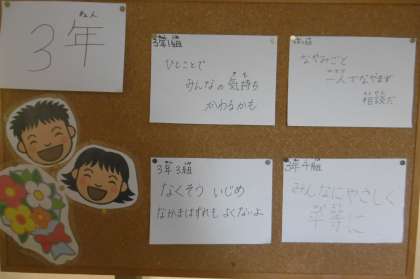 3年
ねん
3年1組
ひとことで
みんなの気持ち
かわるかも
なやみごと
一人でなやまず
相談だ
3年3組
なくそう いじめ
なかまはずれも よくないよ
3年4組
みんなにやさしく
平等に